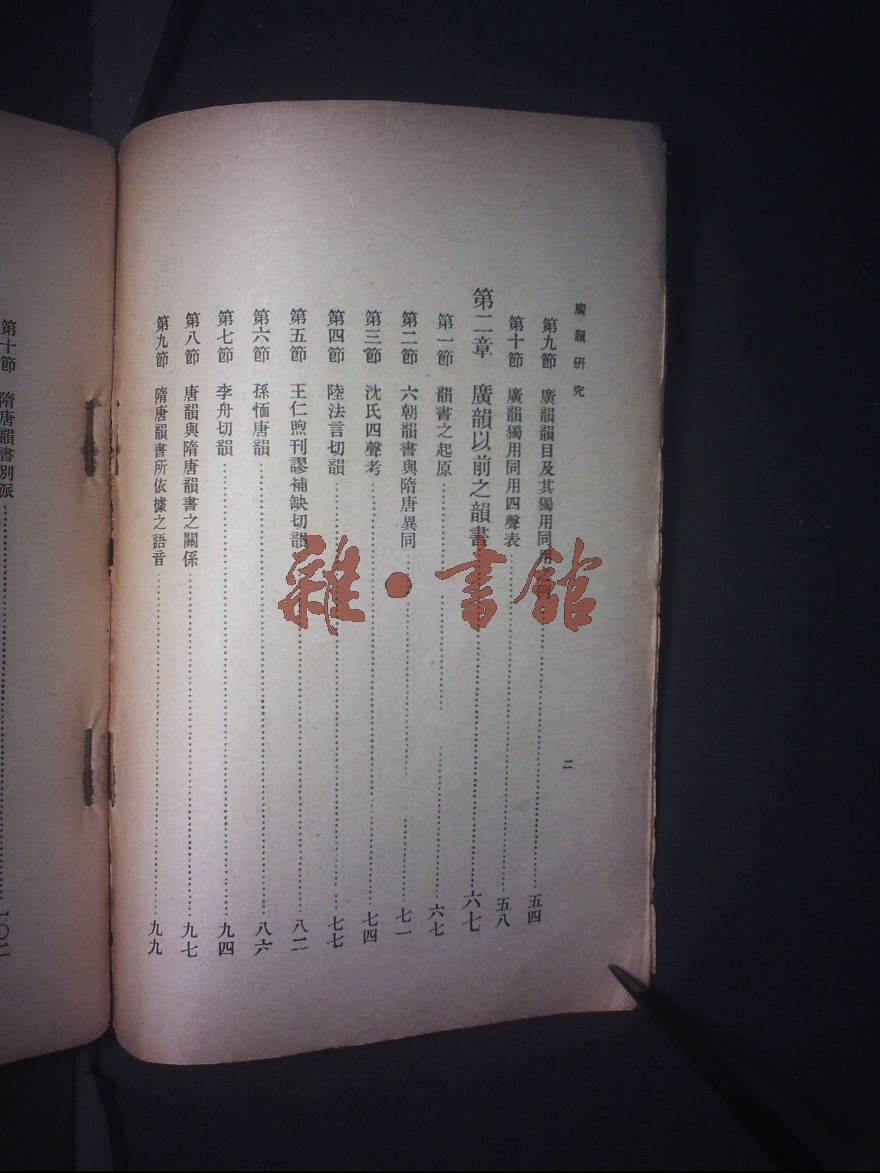 廣韻研究
二
第九節 廣韻韻目及其獨用同用 五四
第十節 廣韻獨用同用四聲表 五八
第二章 廣韻以前之韻書 六七
第一節 韻書之起原 六七
第二節 六朝韻書與隋唐異同 七一
第三節 沈氏四聲考 七四
第四節 陸法言切韻 七七
第五節 王仁煦刊謬補缺切韻 八二
第六節 孫愐唐韻 八六
第七節 李舟切韻 九四
第八節 唐韻與隋唐韻書之關係 九七
第九節 隋唐韻書所依據之語音 九九
第十節 隋唐韻書別派 一〇二
雜·書館